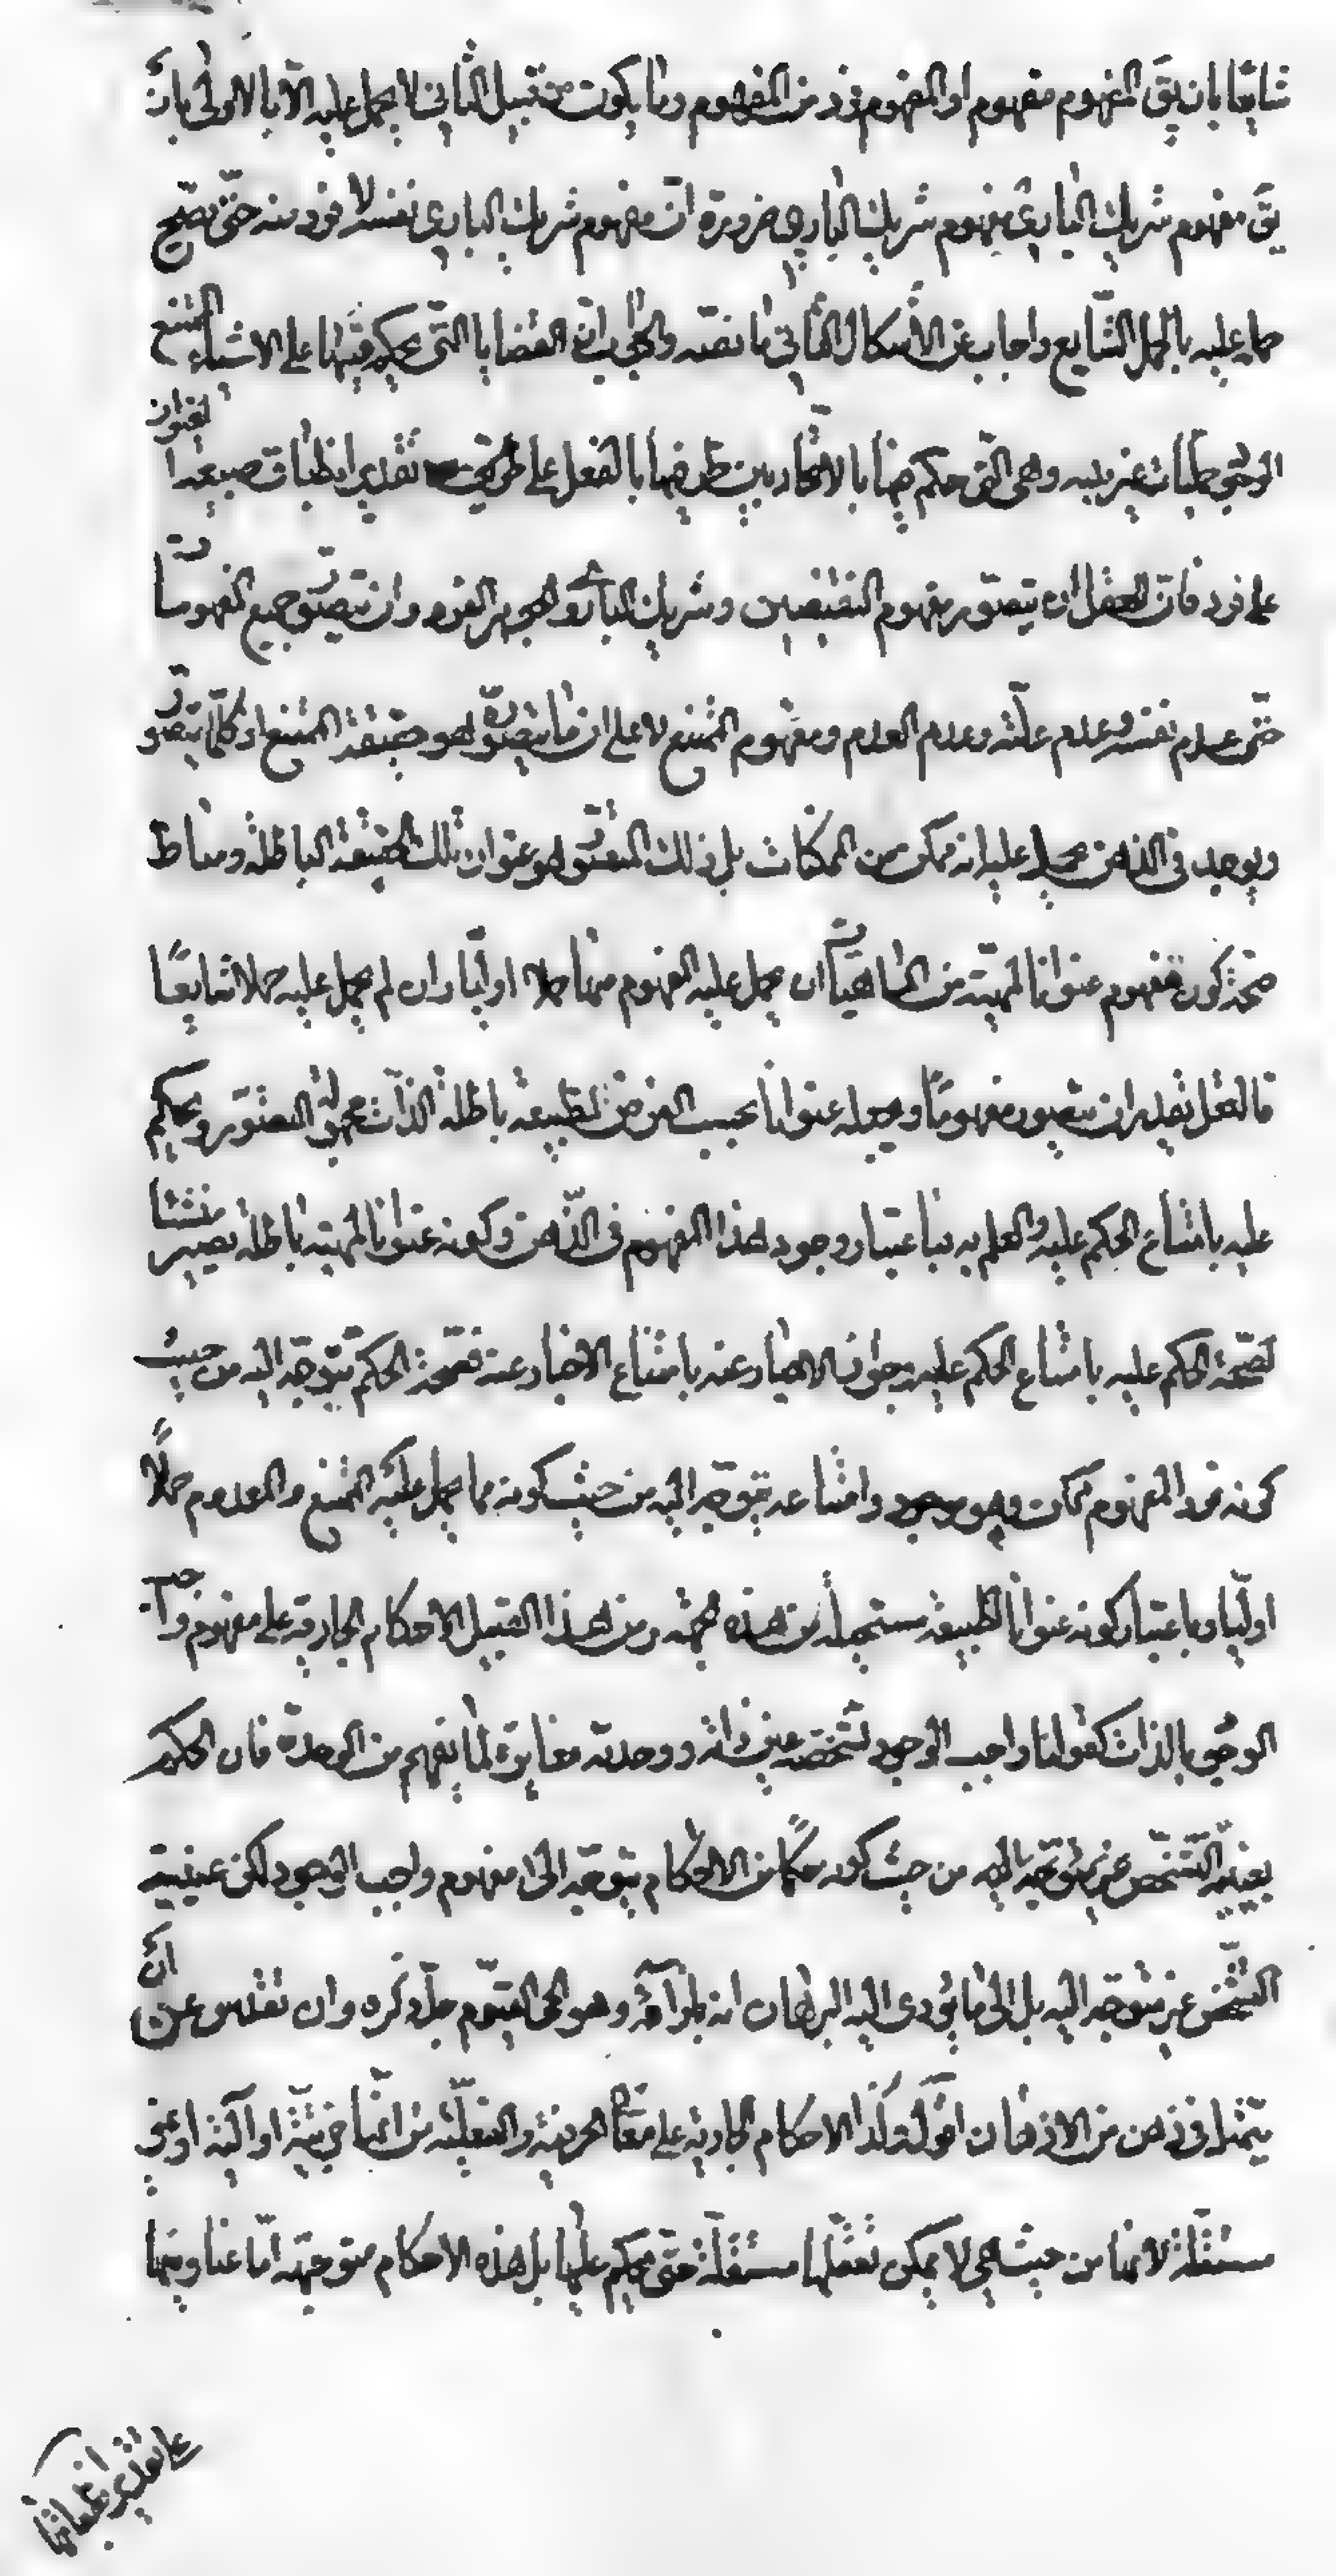 شايعا بان يق المفهوم مفهوم او المفهوم فرد من المفهوم وما يكون من قبيل الثاني لا يحمل عليه الا بالاولى بان
يق مفهوم شريك الباري مفهوم شريك الباري ضرورة ان مفهوم شريك الباري نفسه لا فرد منه حتى يصح
حمله عليه بالحمل الشايع واجاب عن الاشكال الثاني ما نصه والجواب ان القضايا التي يحكم فيها على الاشياء الممتنع
الوجود حمليات غير بتيه وهي التي حكم فيها بالاتحاد بين طرفيها بالفعل على تقدير انطباق طبيعة العنوان
على فرد فان للعقل ان يتصور مفهوم النقيضين وشريك الباري والجوهر الفرد وان يتصور جميع المفهومات
حتى عدم نفسه وعدم علته وعدم العدم ومفهوم الممتنع لا على ان ما يتصوره هو حقيقة الممتنع اذ كلما يتصور
ويوجد في الذهن يحمل عليه انه ممكن من الممكنات بل ذلك المتصور هو عنوان تلك الحقيقة الباطلة ومناط
صحة كون مفهوم عنوانا لمهية من الماهيات ان يحمل عليه المفهوم منها حملا اوليا وان لم يحمل عليه حملا شايعا
فالعقل يقدر ان يتصور مفهوما ويجعله عنوانا بحسب الفرض لطبيعة باطلة الذات مجهولة التصور ويحكم
عليه بامتناع الحكم عليه والعلم به فباعتبار وجود هذا المفهوم في الذهن وكونه عنوانا لمهية باطلة يصير منشئا
لصحة الحكم عليه بامتناع الحكم عليه وجواز الاخبار عنه بامتناع الاخبار عنه فصحة الحكم يتوجه اليه من حيث
كونه فرد المفهوم ممكن وهو موجود وامتناعه يتوجه اليه من حيث كونه مما يحمل عليه الممتنع والمعدوم حملا
اوليا وباعتبار كونه عنوانا لطبيعة مستحيلة من هذه الجهة ومن هذا القبيل الاحكام الجارية على مفهوم واجب
الوجود بالذات كقولنا واجب الوجود تشخصه عين ذاته ووحدته مغايرة لما يفهم من الوحدة فان الحكم
بعينية التشخص غير متوجه اليه من حيث كونه حكما من الاحكام يتوجه الى مفهوم واجب الوجود لكن عينية
التشخص غير متوجه اليه بل الى ما يؤدي اليه البرهان انه بازائه وهو الحي القيوم جل ذكره وان تقدس عن ان
يتمثل في ذهن من الاذهان اقول وكذا الاحكام الجارية على معاني الحرفية والفعلية من انها جزئية او آلية او غير
مستقلة لانها من حيث هي لا يمكن تعقلها مستقلة حتى يحكم عليها بل هذه الاحكام متوجهة اما عناوينها
على تقدير انطباقها